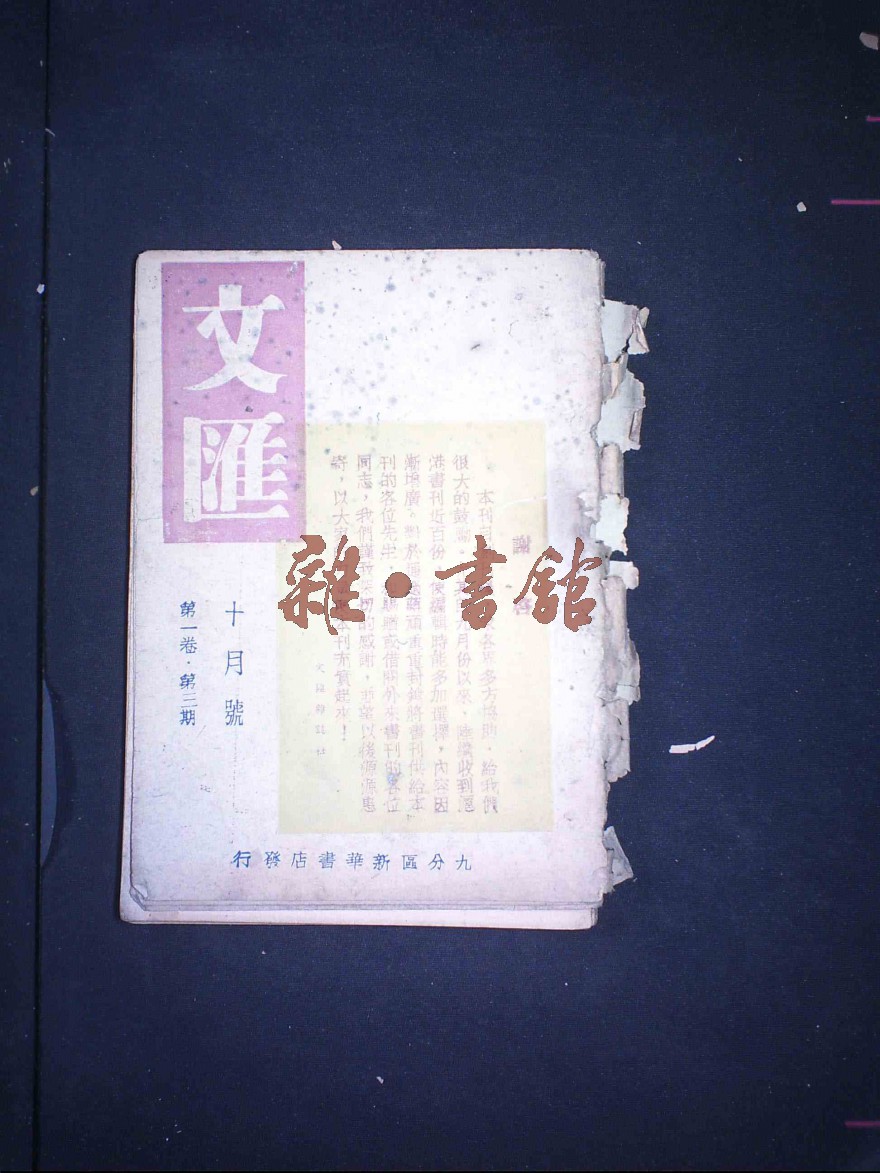 文匯
十月號
第一卷·第三期
本刊 各界多方協助，給我們
很大的鼓勵， 六月份以來，陸續收到滬
港書刊近百份，使編輯時能多加選擇，內容因
漸增廣。對於 將書刊供給本
刊的各位先生， 贈或借閱外來書刊的各位
同志，我們謹致深切的感謝，並望以後源源惠
寄，以大家 本刊充實起來！
文匯雜誌社
九分區新華書店發行
雜·書館